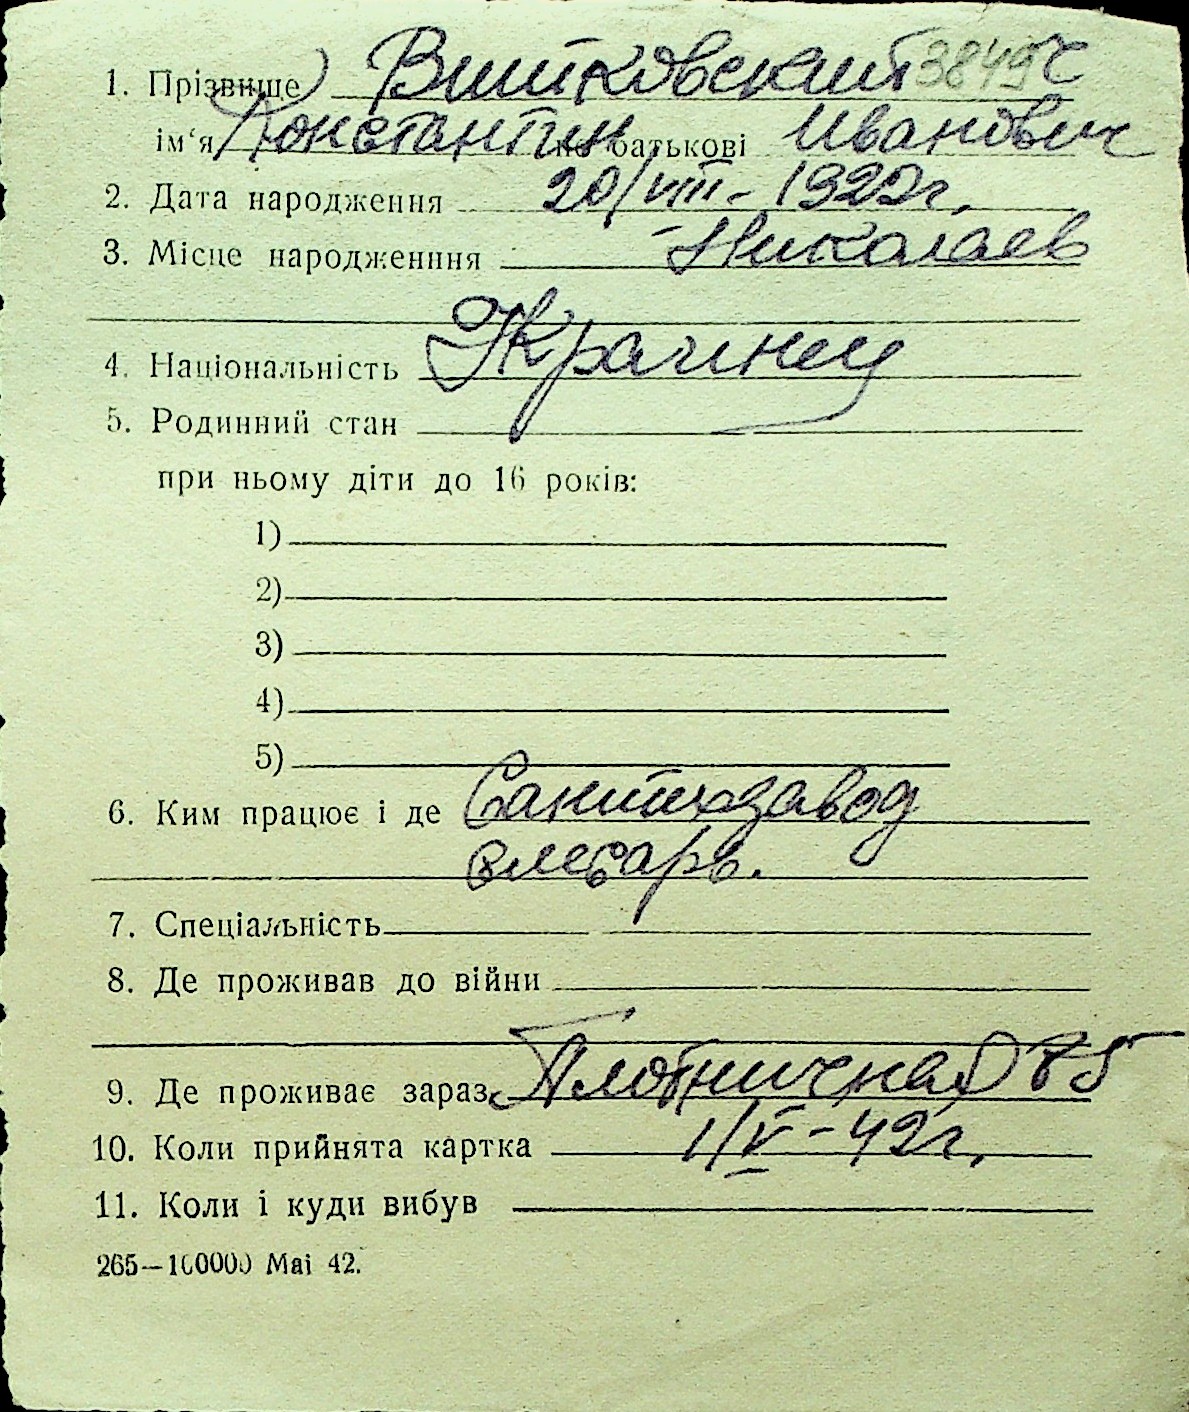 1. Прізвище Витковский 3849 с
ім‘я Константин по батькові Иванович
2. Дата народження 20/VIII - 1922г.
3. Місце народженння Николаев
4. Національність Украинец
5. Родинний стан
при ньому діти до 16 років:
1)
2)
3)
4)
5)
6. Ким працює і де Сантехзавод
слесарь.
7. Спеціальність
8. Де проживав до війни
9. Де проживає зараз Плотничная 75
10. Коли прийнята картка 1/V - 42г.
11. Коли і куди вибув
265—100000 Mai 42.